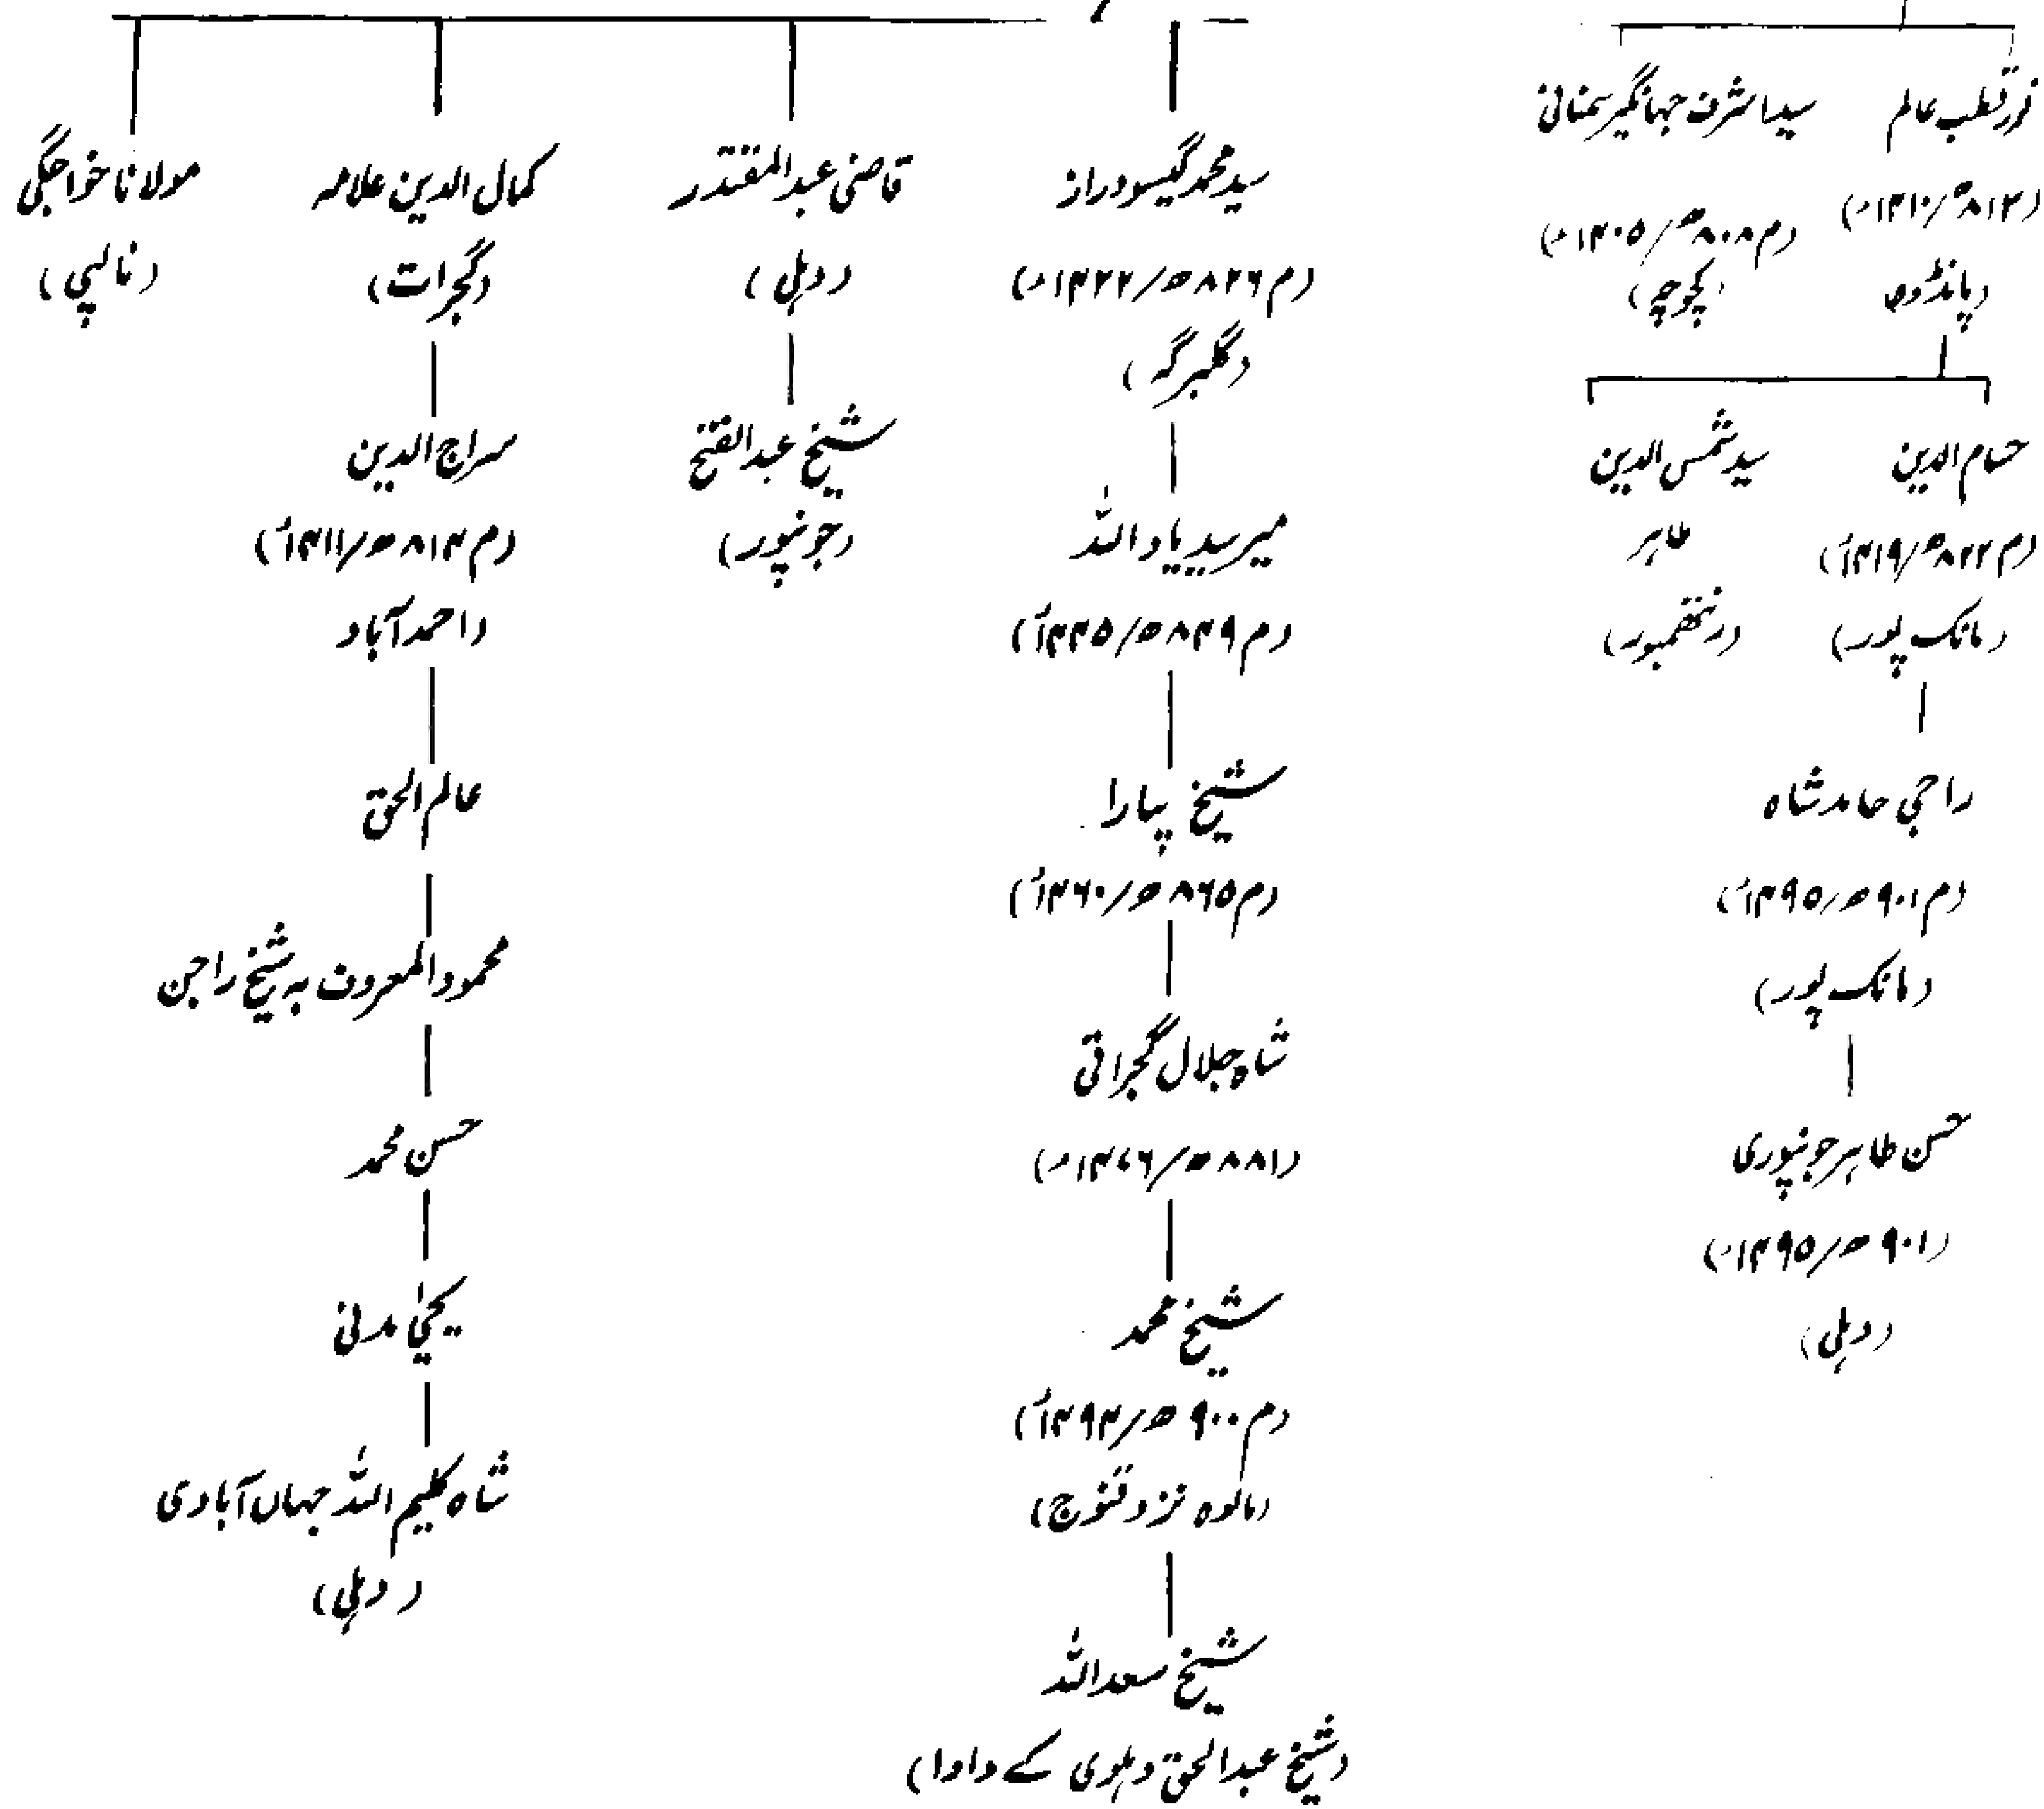 نور قطب عالم
(۸۱۳ھ/۱۴۱۰ء)
(پانڈوہ
سید اشرف جہانگیر سمنانی
(م ۸۰۸ھ/۱۴۰۵ء)
(کچھوچھہ)
حسام الدین
(م ۸۲۲ھ/۱۴۱۹ء)
(مانک پور)
سید شمس الدین
طاہر
(رنتھمبور)
راجی حامد شاہ
(م ۹۰۱ھ/۱۴۹۵ء)
(مانک پور)
حسن طاہر جونپوری
(۹۰۱ھ/۱۴۹۵ء)
(دہلی)
سید محمد گیسو دراز
(م ۸۲۶ھ/۱۴۲۲ء)
(گلبرگہ)
میر سید یاد اللہ
(م ۸۴۹ھ/۱۴۴۵ء)
شیخ پیارا
(م ۸۶۵ھ/۱۴۶۰ء)
شاہ جلال گجراتی
(۸۸۱ھ/۱۴۷۶ء)
شیخ محمد
(م ۹۰۰ھ/۱۴۹۴ء)
(مالوہ نزد قنوج)
شیخ سعد اللہ
(شیخ عبد الحق دہلوی کے دادا)
قاضی عبد المقتدر
(دہلی)
شیخ عبد الفتح
(جونپور)
کمال الدین علامہ
(گجرات)
سراج الدین
(م ۸۱۴ھ/۱۴۱۱ء)
(احمد آباد
عالم الحق
محمود المعروف بہ شیخ راجن
حسن محمد
یحییٰ مدنی
شاہ کلیم اللہ جہاں آبادی
(دہلی)
مولانا خواجگی